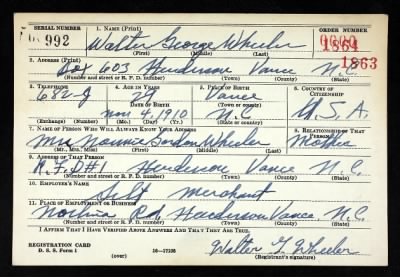 SERIAL NUMBER
1. NAME (Print)
ORDER NUMBER
992
Walter George Wheeler
1864
1863
(First) (Middle) (Last)
2. ADDRESS (Print)
Box 603 Henderson Vance N.C.
(Number and street or R. F. D. number) (Town) (County) (State)
3. TELEPHONE
4. AGE IN YEARS
5. PLACE OF BIRTH
6. COUNTRY OF CITIZENSHIP
682-J
29
Vance
(Town or county)
DATE OF BIRTH
Nov 4, 1910
N.C.
U.S.A.
(Mo.) (Day) (Yr.)
(State or country)
7. NAME OF PERSON WHO WILL ALWAYS KNOW YOUR ADDRESS
8. RELATIONSHIP OF THAT PERSON
Gordon Wheeler
Mother
(Mr., Mrs., Miss) (First) (Middle) (Last)
9. ADDRESS OF THAT PERSON
R.F.D #1 Henderson Vance N.C.
(Number and street or R. F. D. number) (Town) (County) (State)
10. EMPLOYER'S NAME
Self merchant
11. PLACE OF EMPLOYMENT OR BUSINESS
Norlina Rd, Henderson Vance N.C.
(Number and street or R. F. D. number) (Town) (County) (State)
I AFFIRM THAT I HAVE VERIFIED ABOVE ANSWERS AND THAT THEY ARE TRUE.
REGISTRATION CARD
D. S. S. Form 1
(over)
Walter G. Wheeler
(Registrant's signature)